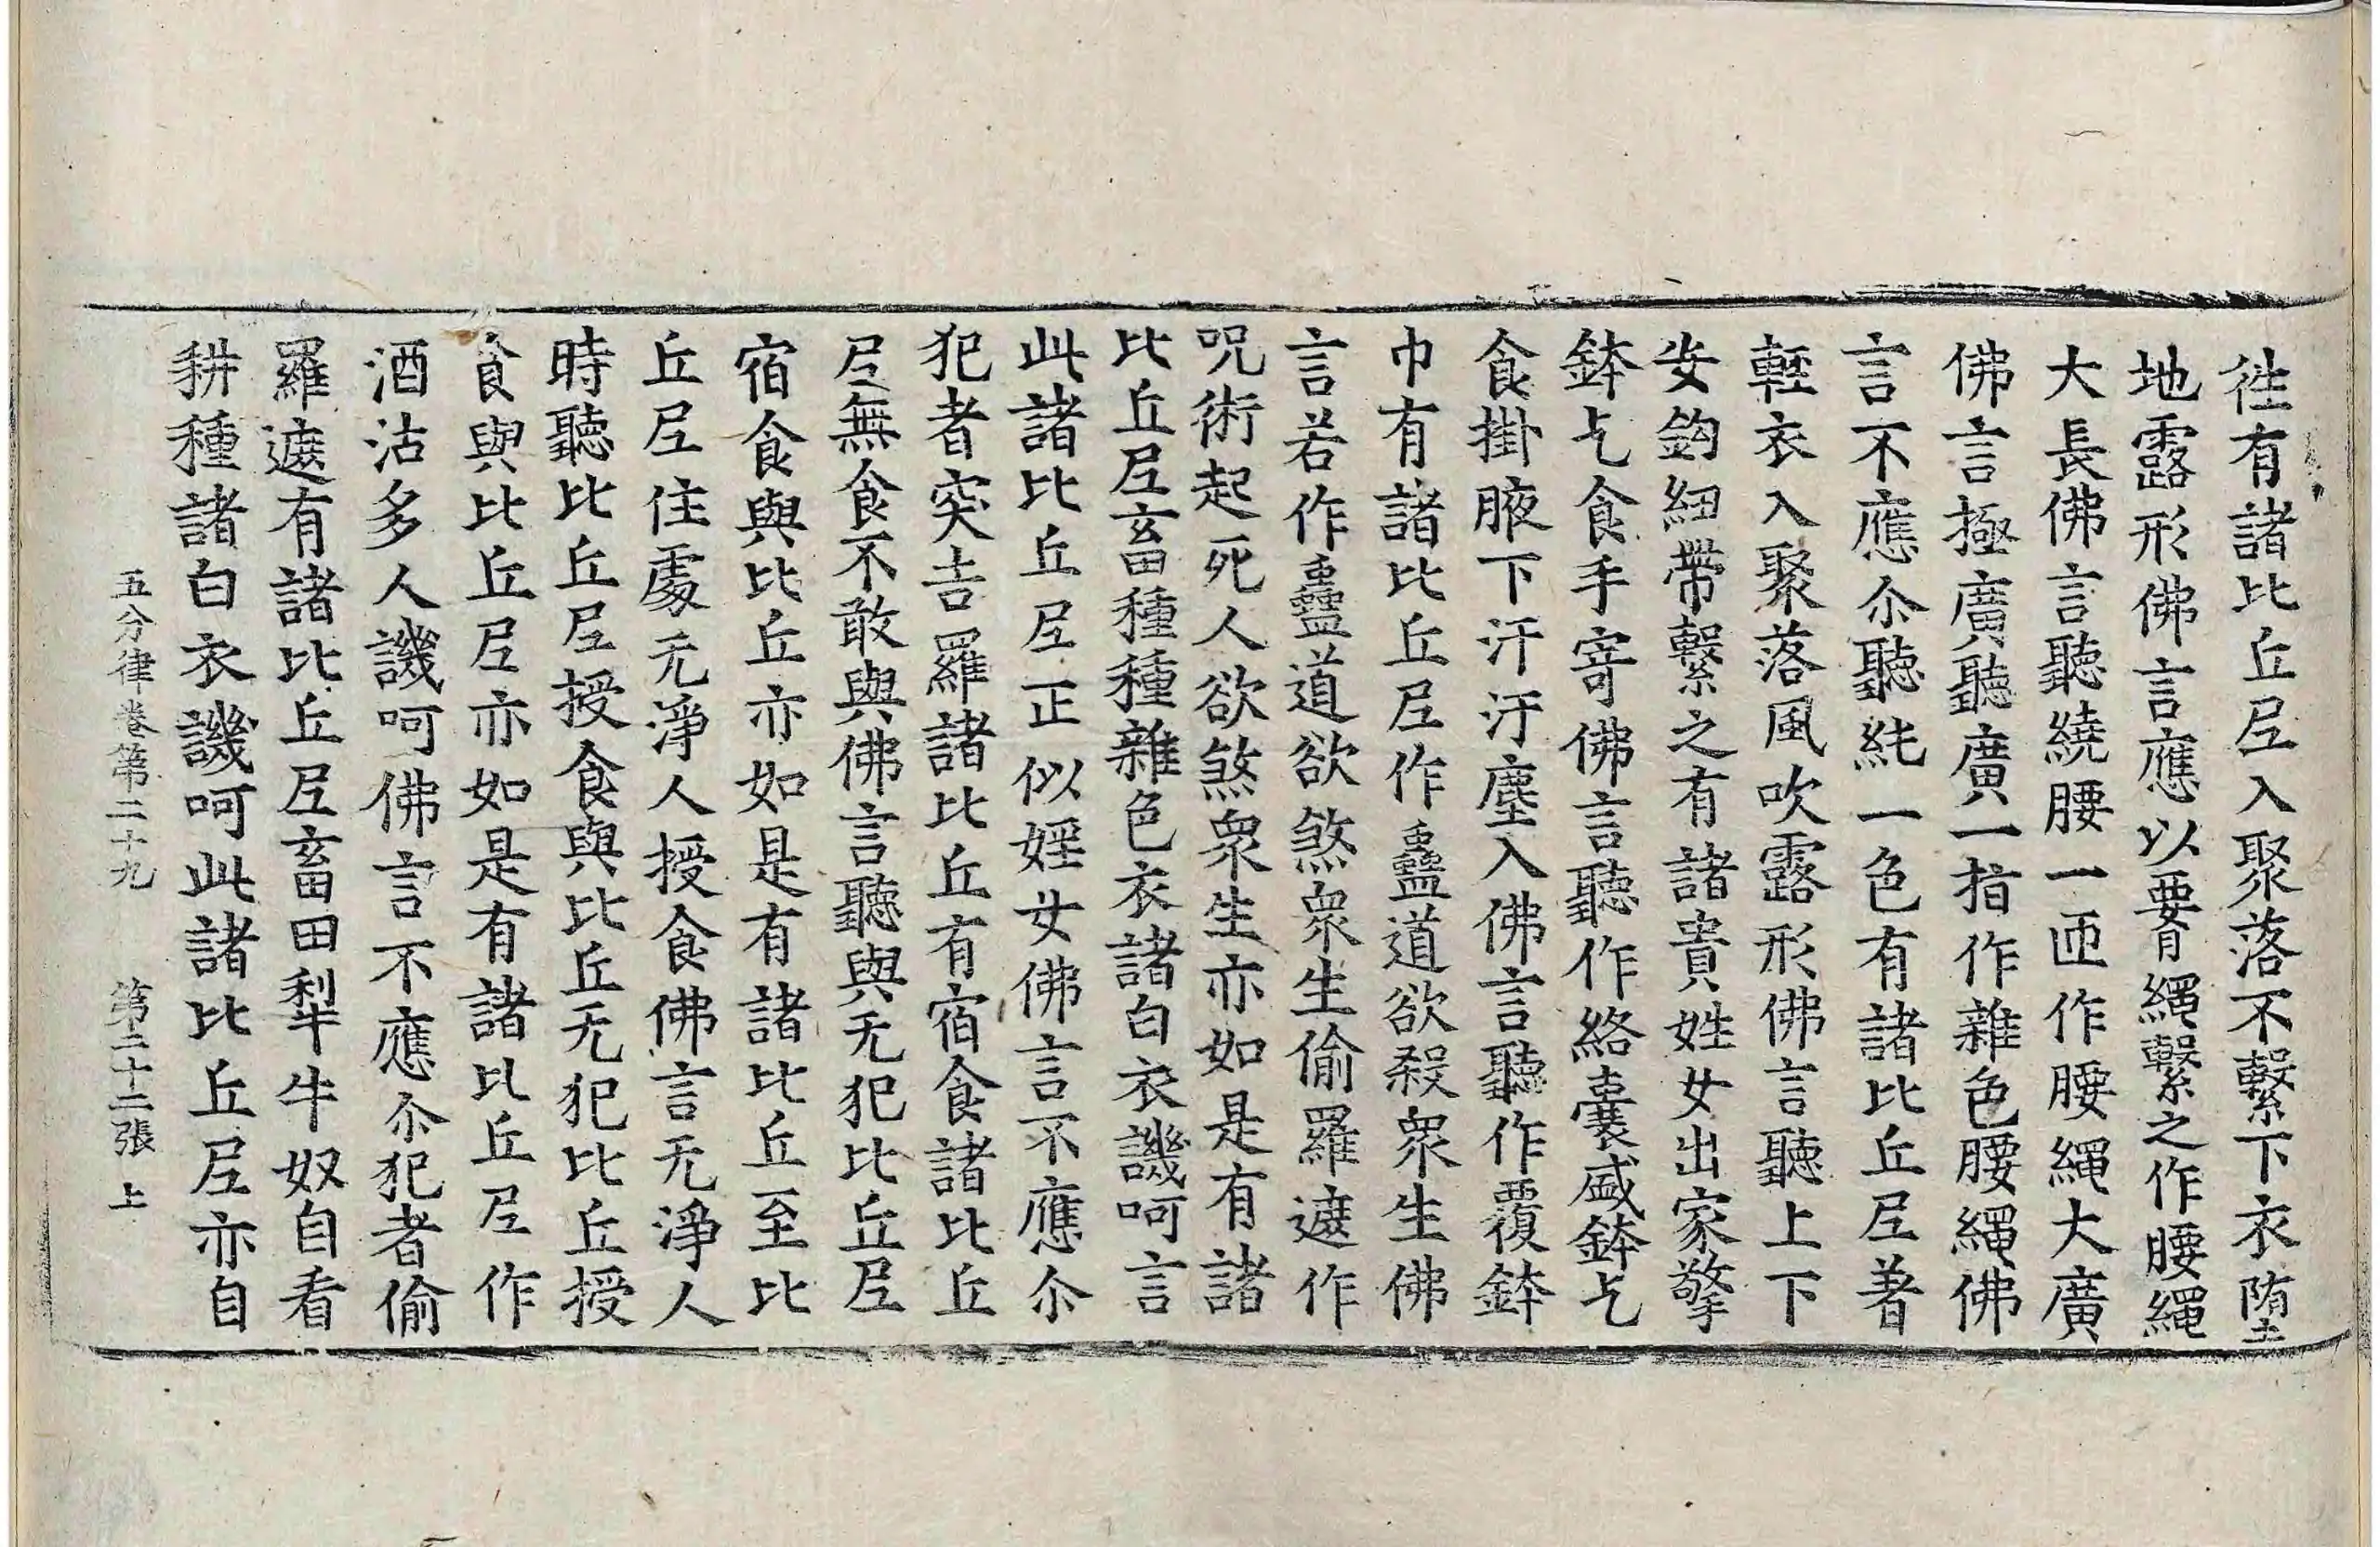 徃有諸比丘尼入聚落不繫下衣墮
地露形佛言應以要繩繫之作腰繩
大長佛言聽繞腰一匝作腰繩大廣
佛言極廣聽廣一指作雜色腰繩佛
言不應尒聽純一色有諸比丘尼著
輕衣入聚落風吹露形佛言聽上下
安鉤紐帶繫之有諸貴姓女出家擎
鉢乞食手寄佛言聽作絡囊盛鉢乞
食掛腋下汗汙塵入佛言聽作覆鉢
巾有諸比丘尼作蠱道欲殺衆生佛
言若作蠱道欲煞衆生偷羅遮作
呪術起死人欲煞衆生亦如是有諸
比丘尼畜種種雜色衣諸白衣譏呵言
此諸比丘尼正似婬女佛言不應尒
犯者突吉羅諸比丘有宿食諸比丘
尼無食不敢與佛言聽與无犯比丘尼
宿食與比丘亦如是有諸比丘至比
丘尼住處无淨人授食佛言无淨人
時聽比丘尼授食與比丘无犯比丘授
食與比丘尼亦如是有諸比丘尼作
酒沽多人譏呵佛言不應尒犯者偷
羅遮有諸比丘尼畜田犁牛奴自看
耕種諸白衣譏呵此諸比丘尼亦自
五分律卷第二十九 第二十二張 上